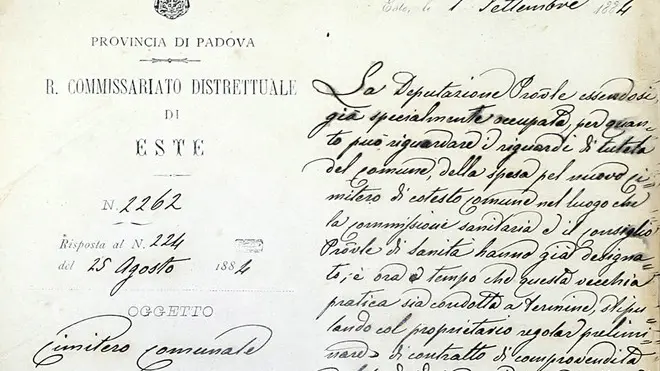 PROVINCIA DI PADOVA
R. COMMISSARIATO DISTRETTUALE
DI
ESTE
N. 2262
Risposta al N. 224
del 25 Agosto 1884
OGGETTO
Cimitero Comunale
Este, li 1 Settembre 1884
La Deputazione Prov̄le essendosi
già specialmente occupata, per quan-
to può riguardare i riguardi di tutela
del comune, della spesa pel nuovo ci-
mitero di cotesto comune nel luogo che
la commissione sanitaria e il consiglio
Prov̄le di sanità hanno già designa-
to, è ora e tempo che questa vecchia
pratica sia condotta a termine, stipu-
lando col proprietario regolar prelimi-
nare di contratto di comprovendita